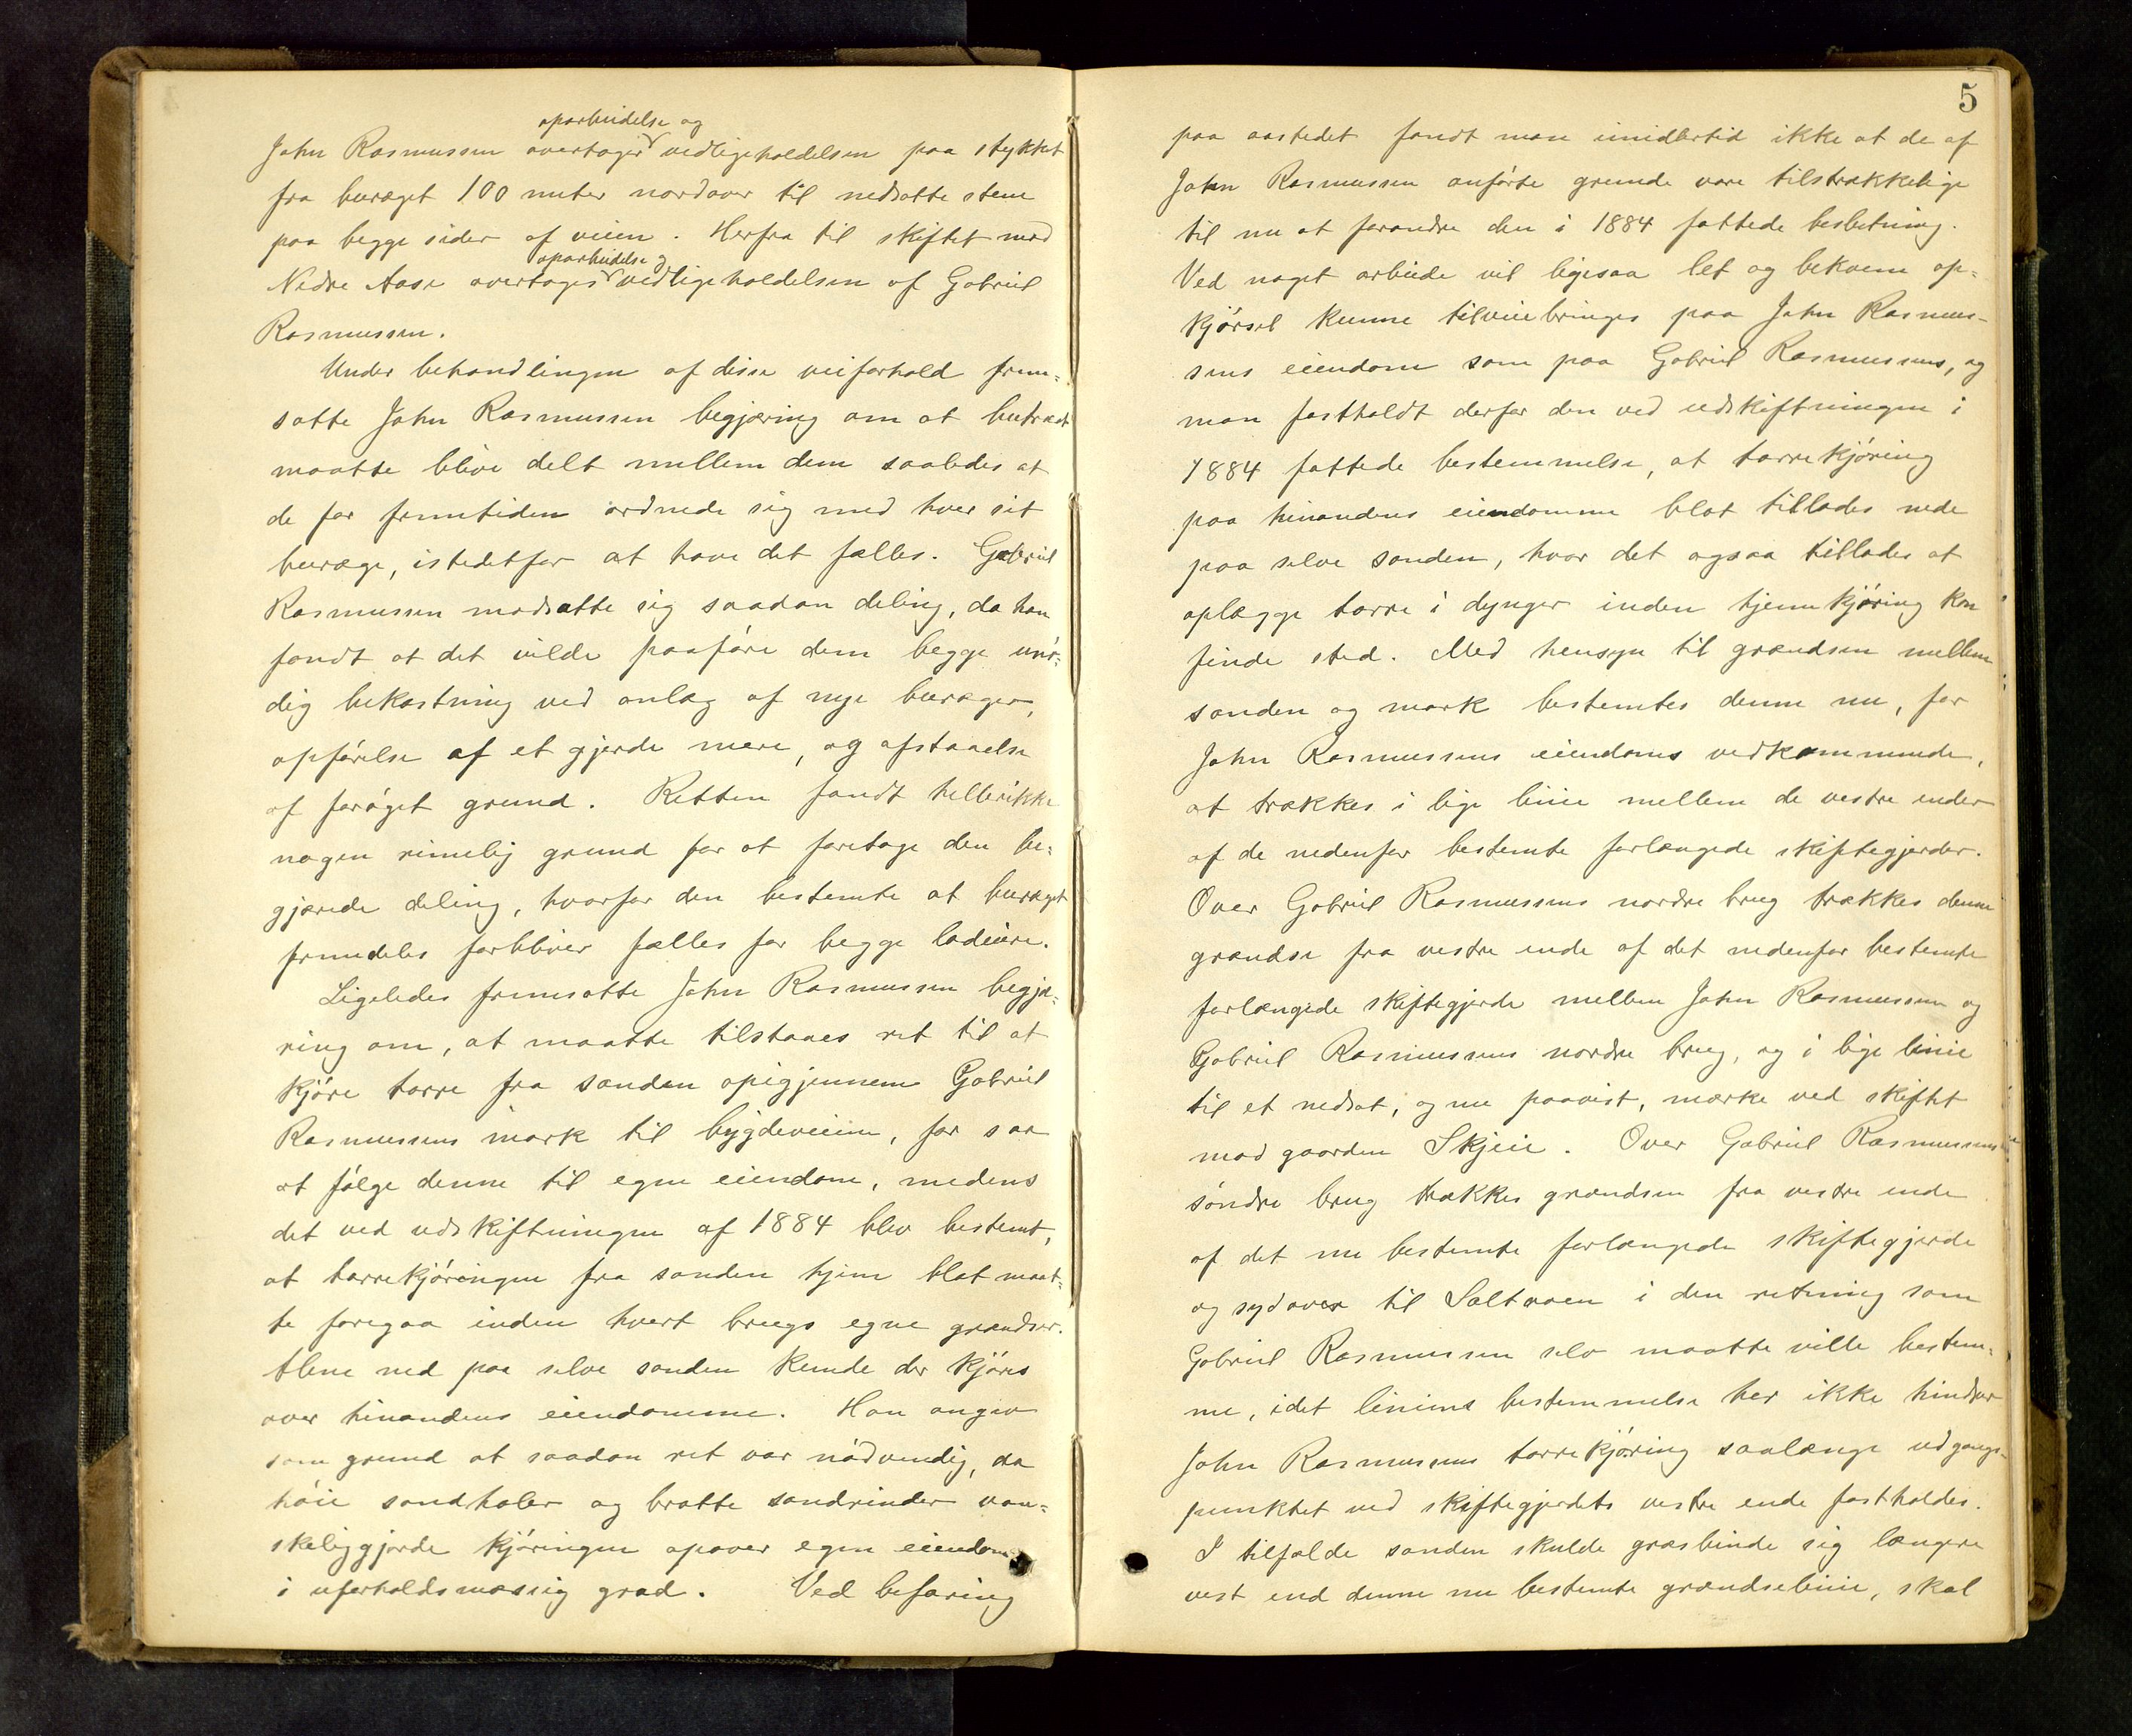 oparbeidelse og
John Rasmussen overtager vedligeholdelsen paa stykket
fra buræget 100 meter nordover til nedsatte stene
paa begge sider af veien. Herfra til skiftet med
oparbeidelse og
Nedre Aase overtages vedligeholdelsen af Gabriel
Rasmussen.
Under behandlingen af disse veiforhold frem-
satte John Rasmussen begjæring om at buræget
maatte blive delt mellem dem saaledes at
de for fremtiden ordnede sig med hver sit
buræge, istedetfor at have det fælles. Gabriel
Rasmussen modsatte sig saadan deling, da han
fandt at det vilde paaføre dem begge unø-
dig bekostning ved anlæg af nye buræger,
opførelse af et gjerde mere, og afstaaelse
af forøget grund. Retten fandt heller ikke
nogen rimelig grund for at foretage den be-
gjærede deling, hvorfor den bestemte at buræget
fremdeles forbliver fælles for begge lodeiere.
Ligeledes fremsatte John Rasmussen begjæ-
ring om, at maatte tilstaaes ret til at
kjøre tarre fra sanden opigjennem Gabriel
Rasmussens mark til bygdeveien, for saa
at følge denne til egen eiendom, medens
det ved udskiftningen af 1884 blev bestemt,
at tarrekjøringen fra sanden hjem blot maat-
te foregaa inden hvert brugs egne grændser.
Alene ned paa selve sanden kunde der kjøres
over hinandens eiendomme. Han angav
som grund at saadan ret var nødvendig, da
høie sandhaler og bratte sandrinder van-
skeliggjorde kjøringen opover egen eiendom
i uforholdsmæssig grad. Ved befaring
5
paa aastedet fandt man imidlertid ikke at de af
John Rasmussen anførte grunde vare tilstrækkelige
til nu at forandre den i 1884 fattede beslutning.
Ved noget arbeide vil ligesaa let og bekvem op-
kjørsel kunne tilveiebringes paa John Rasmus-
sens eiendom som paa Gabriel Rasmussens, og
man fastholdt derfor den ved udskiftningen i
1884 fattede bestemmelse, at tarrekjøring
paa hinandens eiendomme blot tillades nede
paa selve sanden, hvor det ogsaa tillades at
oplægge tarre i dynger inden hjemkjøring kan
finde sted. Med hensyn til grændsen mellem
sanden og mark bestemtes denne nu, for
John Rasmussens eiendoms vedkommende,
at trækkes i lige linie mellem de vestre ender
af de nedenfor bestemte forlængede skiftegjerder.
Over Gabriel Rasmussens nordre brug trækkes denne
grændse fra vestre ende af det nedenfor bestemte
forlængede skiftegjerde mellem John Rasmussen og
Gabriel Rasmussens nordre brug, og i lige linie
til et nedsat, og nu paavist, mærke ved skiftet
mod gaarden Skjeie. Over Gabriel Rasmussens
søndre brug trækkes grændsen fra vestre ende
af det nu bestemte forlængede skiftegjerde
og sydover til Saltaaen i den retning som
Gabriel Rasmussen selv maatte ville bestem-
me, idet liniens bestemmelse her ikke hindrer
John Rasmussens tarrekjøring saalænge udgangs-
punktet ved skiftegjerdets vestre ende fastholdes.
I tilfælde sanden skulde græsbinde sig længere
vest end denne nu bestemte grændselinie, skal